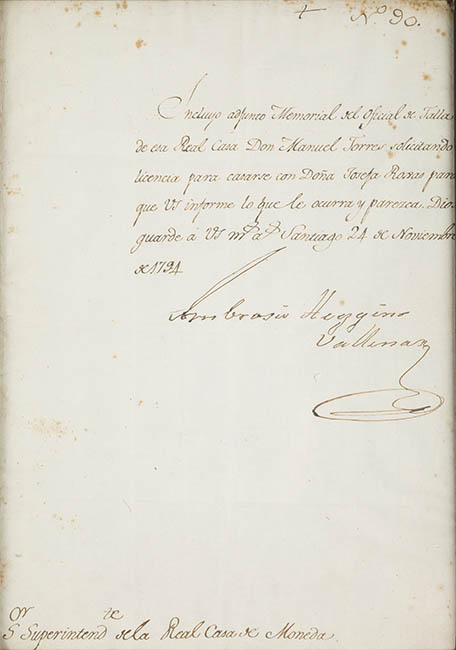 + Nº 90.
Incluyo adjunto Memorial del Oficial de Talla
de esa Real Casa Don Manuel Torres solicitando
licencia para casarse con Doña Josefa Roxas para
que VS informe lo que le ocurra y parezca. Dios
guarde á VS mˢ aˢ Santiago 24 de Noviembre
de 1794
Ambrosio Higgins
Vallenar
Sᵒʳ Superintendᵗᵉ de la Real Casa de Moneda.